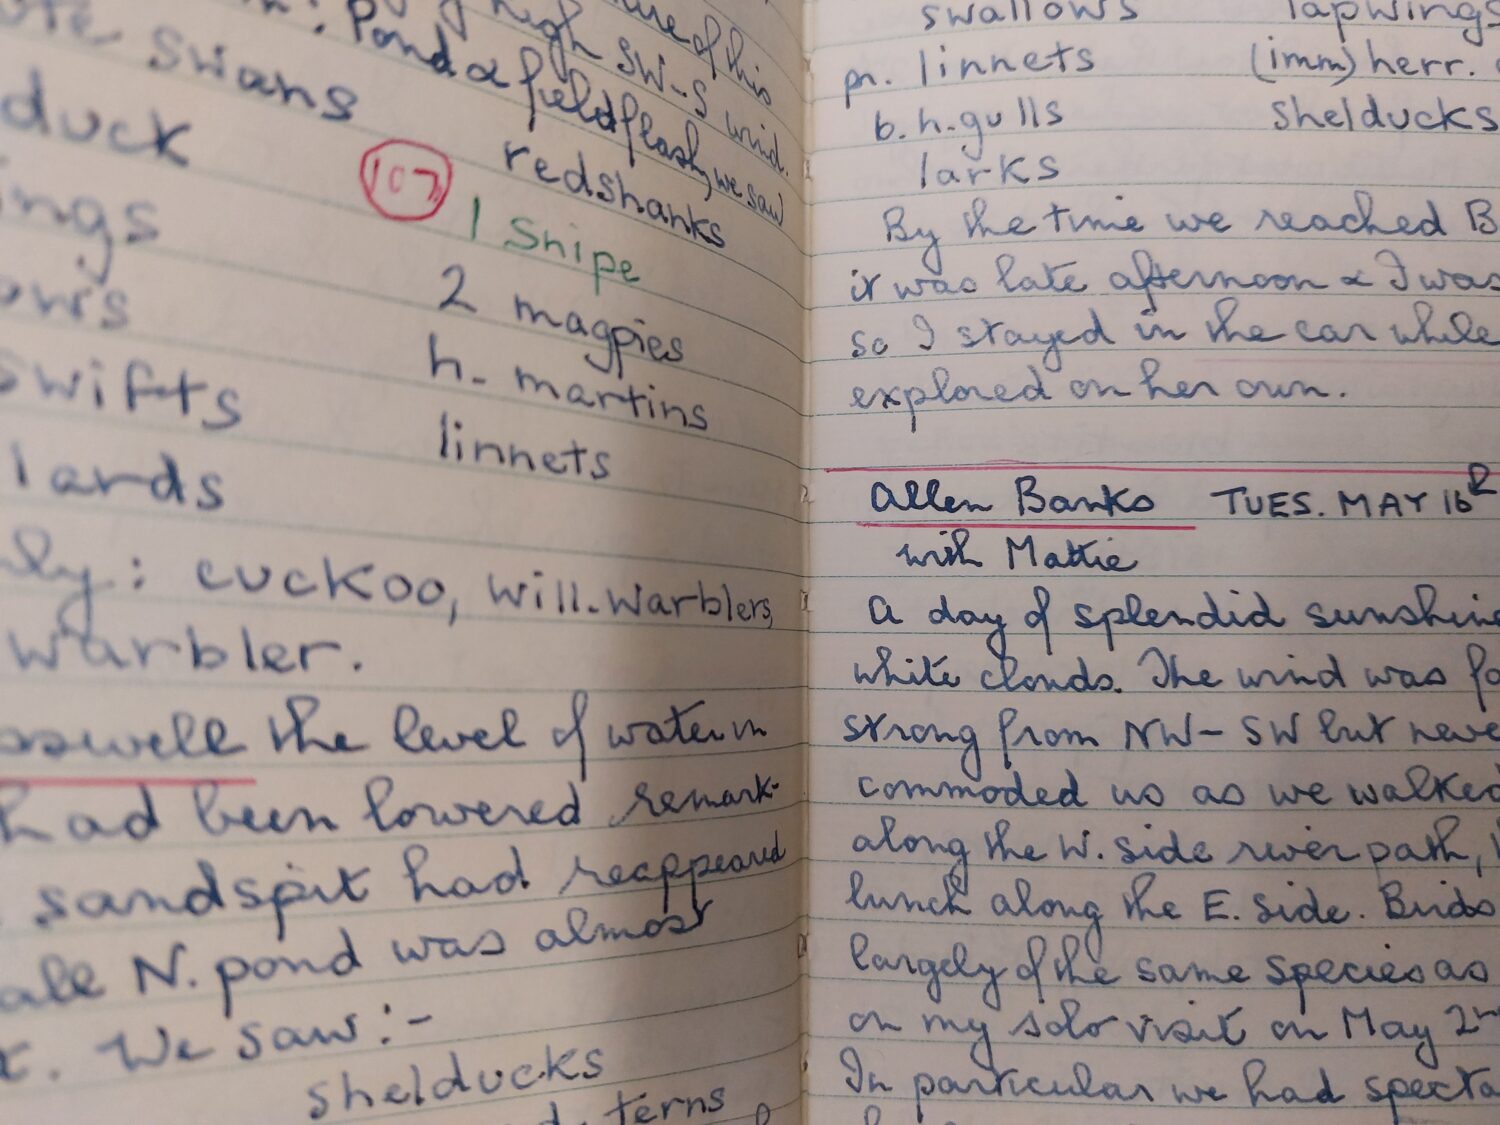 ure of this
high SW-S wind.
: Pond & fieldflash, we saw
swans
duck
redshanks
107
1 Snipe
ings
2 magpies
ows
h. martins
swifts
linnets
lards
ly: cuckoo, will. warblers,
warbler.
sswell the level of water in
had been lowered remark-
sandspit had reappeared
ale N. pond was almost
t. We saw:-
shelducks
terns
swallows lapwings
pr. linnets (imm) herr.
b. h. gulls shelducks
larks
By the time we reached B
it was late afternoon & I was
so I stayed in the car while
explored on her own.
Allen Banks TUES. MAY 16
with Mattie
A day of splendid sunshine
white clouds. The wind was fa
strong from NW-SW but neve
commoded us as we walked
along the W. side river path,
lunch along the E. side. Birds
largely of the same species as
on my solo visit on May 2nd
In particular we had specta